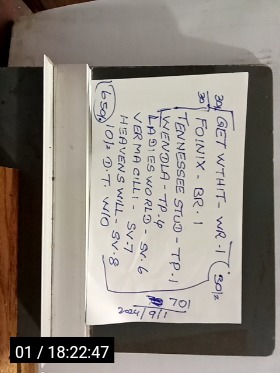 GET WTHIT - WR.1
FOINIX - BR.1
TENNESSEE STUD - TP.1
WENDLA - TP.4
LADIES WORLD - SV.6
VERMACILLI - SV.7
HEAVENS WILL - SV.8
650/ 10/2 D.T. W10
30/2
701
2024/9/1
01 / 18:22:47